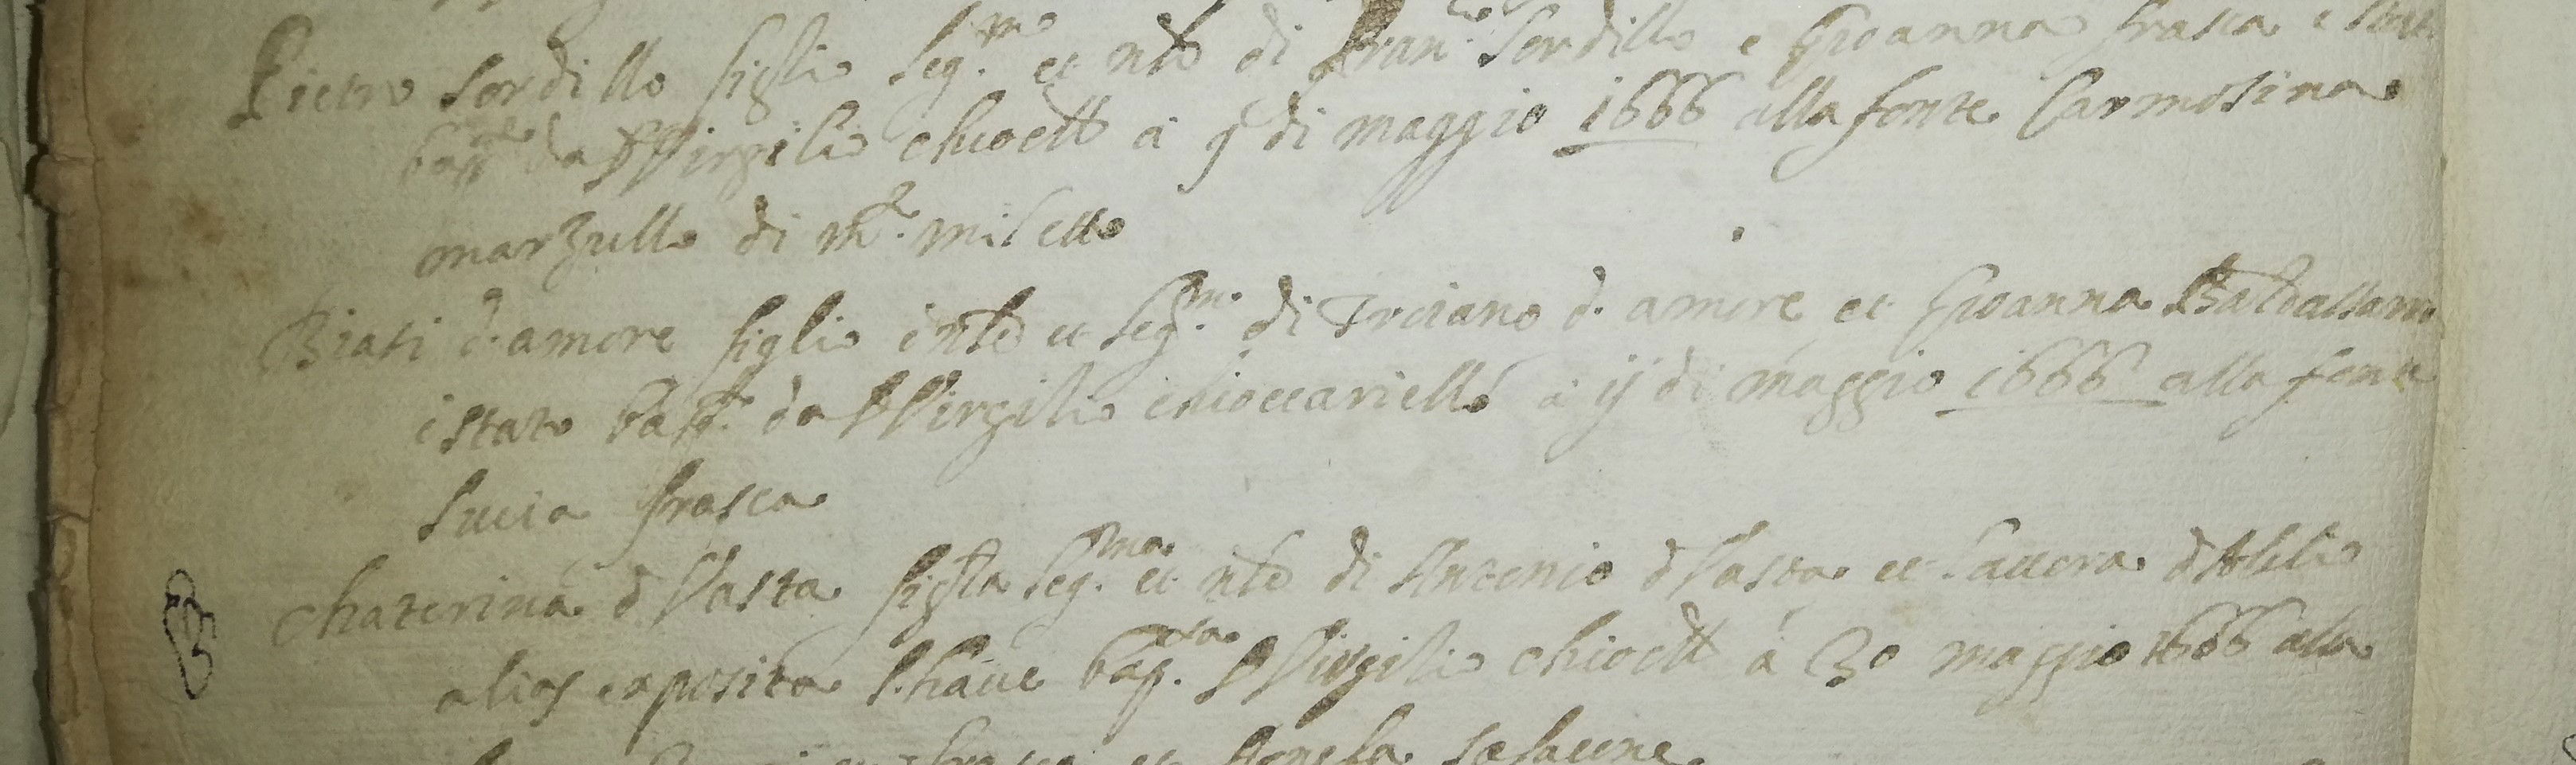 Pietro Sordillo figlio leg.mo et nto di Fran.co Sordillo e Gioanna frasca e stato
bap.to da D Virgilio chioctt à 9 di maggio 1666 alla fonte Carmosina
marzullo di m.o miletto
Biasi d. amore figlio into et leg.mo di Troiano d. amore et Gioanna Baldassarro
i stato bap.to da D Virgilio chioccariello à ij di maggio 1666 alla fonte
lucia frasca
Chaterina d Vasta figlia leg.ma et nto di Antonio d Vasta et lauora
alias exposita l'haue bap.ata D Virgilio chioctt à 30 maggio 1666 alla
frasca et Agnela